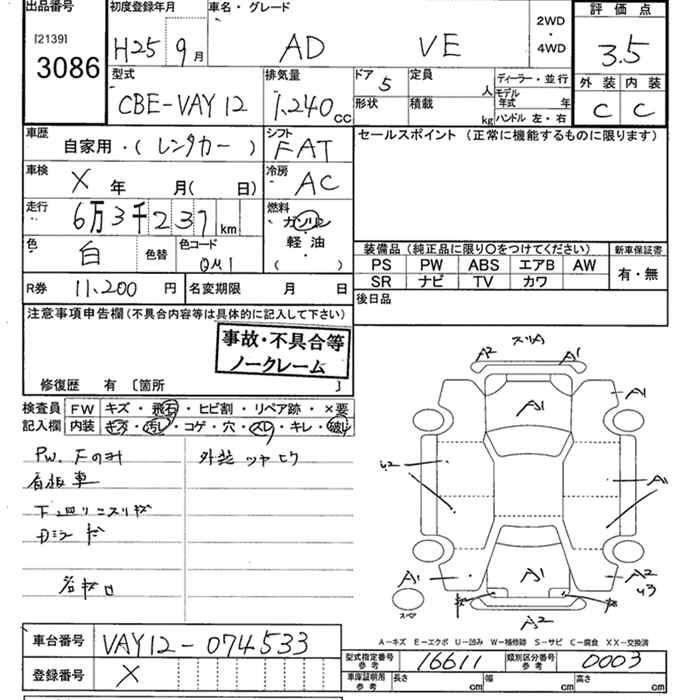 出品番号 初度登録年月 車名・グレード 2WD ・ 4WD 評価点
[2139]
3086 H25 9月 AD VE 3.5
型式 排気量 ドア 定員 人 ディーラー・並行 外装 内装
CBE-VAY12 1,240cc 5 形状 積載 kg モデル年式 年 C C
ハンドル 左・右
車歴 自家用・(レンタカー) シフト FAT セールスポイント (正常に機能するものに限ります)
車検 X 年 月( 日) 冷房 AC
走行 6万3千237km 燃料 ガソリン
軽油
( )
色 白 色替 色コード QM1 装備品(純正品に限り〇をつけてください) 新車保証書
PS PW ABS エアB AW 有・無
SR ナビ TV カワ
R券 11,200 円 名変期限 月 日 後日品
注意事項申告欄(不具合内容等は具体的に記入して下さい)
事故・不具合等
ノークレーム
修復歴 有 〔箇所 〕
検査員 FW キズ・飛石・ヒビ割・リペア跡・×要
記入欄 内装 キズ・汚レ・コゲ・穴・スレ・キレ・破レ
PW、Fのみ 外装ツヤヒケ
看板車
下回リ
スリA
A2 A1
A1 A1
A1
A1 A1 A2
スペア
A2
A-キズ E-エクボ U-凹み W-補修跡 S-サビ C-腐食 XX-交換済
車台番号 VAY12-074533
型式指定番号 参考 16611 類別区分番号 参考 0003
登録番号 X
車庫証明用 参考 長さ cm 幅 cm 高さ cm